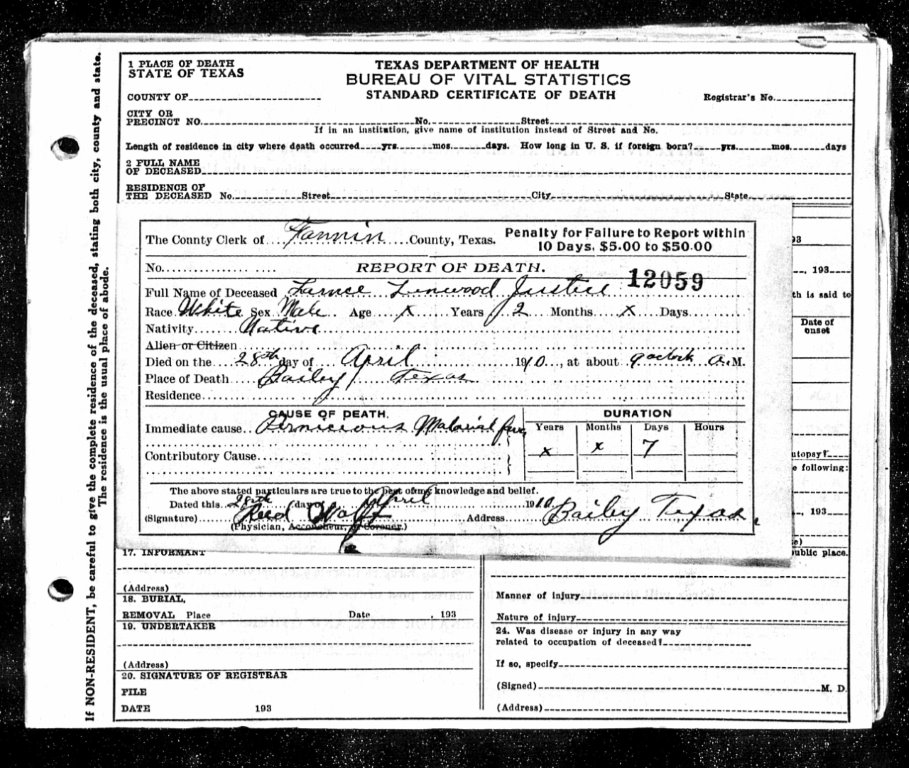 1 PLACE OF DEATH
STATE OF TEXAS
TEXAS DEPARTMENT OF HEALTH
BUREAU OF VITAL STATISTICS
STANDARD CERTIFICATE OF DEATH
COUNTY OF
Registrar's No.
CITY OR
PRECINCT NO. No. Street
If in an institution, give name of institution instead of Street and No.
Length of residence in city where death occurred yrs. mos. days. How long in U. S. if foreign born? yrs. mos. days
2 FULL NAME
OF DECEASED
RESIDENCE OF
THE DECEASED No. Street City State
If NON-RESIDENT, be careful to give the complete residence of the deceased, stating both city, county and state.
The residence is the usual place of abode.
The County Clerk of Fannin County, Texas.
Penalty for Failure to Report within
10 Days, $5.00 to $50.00
No. REPORT OF DEATH. 12059
Full Name of Deceased Linwood Justice
Race White Sex Male Age X Years 2 Months X Days
Nativity Native
Alien or Citizen
Died on the 28th day of April 1910, at about 9 oclock a.M.
Place of Death Bailey Texas
Residence
CAUSE OF DEATH. DURATION
Immediate cause Pernicious Malarial
Years Months Days Hours
x x 7
Contributory Cause
The above stated particulars are true to the best of my knowledge and belief.
Dated this 28th day of April 1910
(Signature) Address Bailey Texas.
(Physician, Accoucheur, or Coroner.)
93
, 193
th is said to
Date of
onset
utopsy?
e following:
, 193
ublic place.
17. INFORMANT
(Address)
18. BURIAL,
REMOVAL Place Date , 193
19. UNDERTAKER
(Address)
20. SIGNATURE OF REGISTRAR
FILE
DATE 193
Manner of injury
Nature of injury
24. Was disease or injury in any way
related to occupation of deceased?
If so, specify
(Signed) M. D.
(Address)